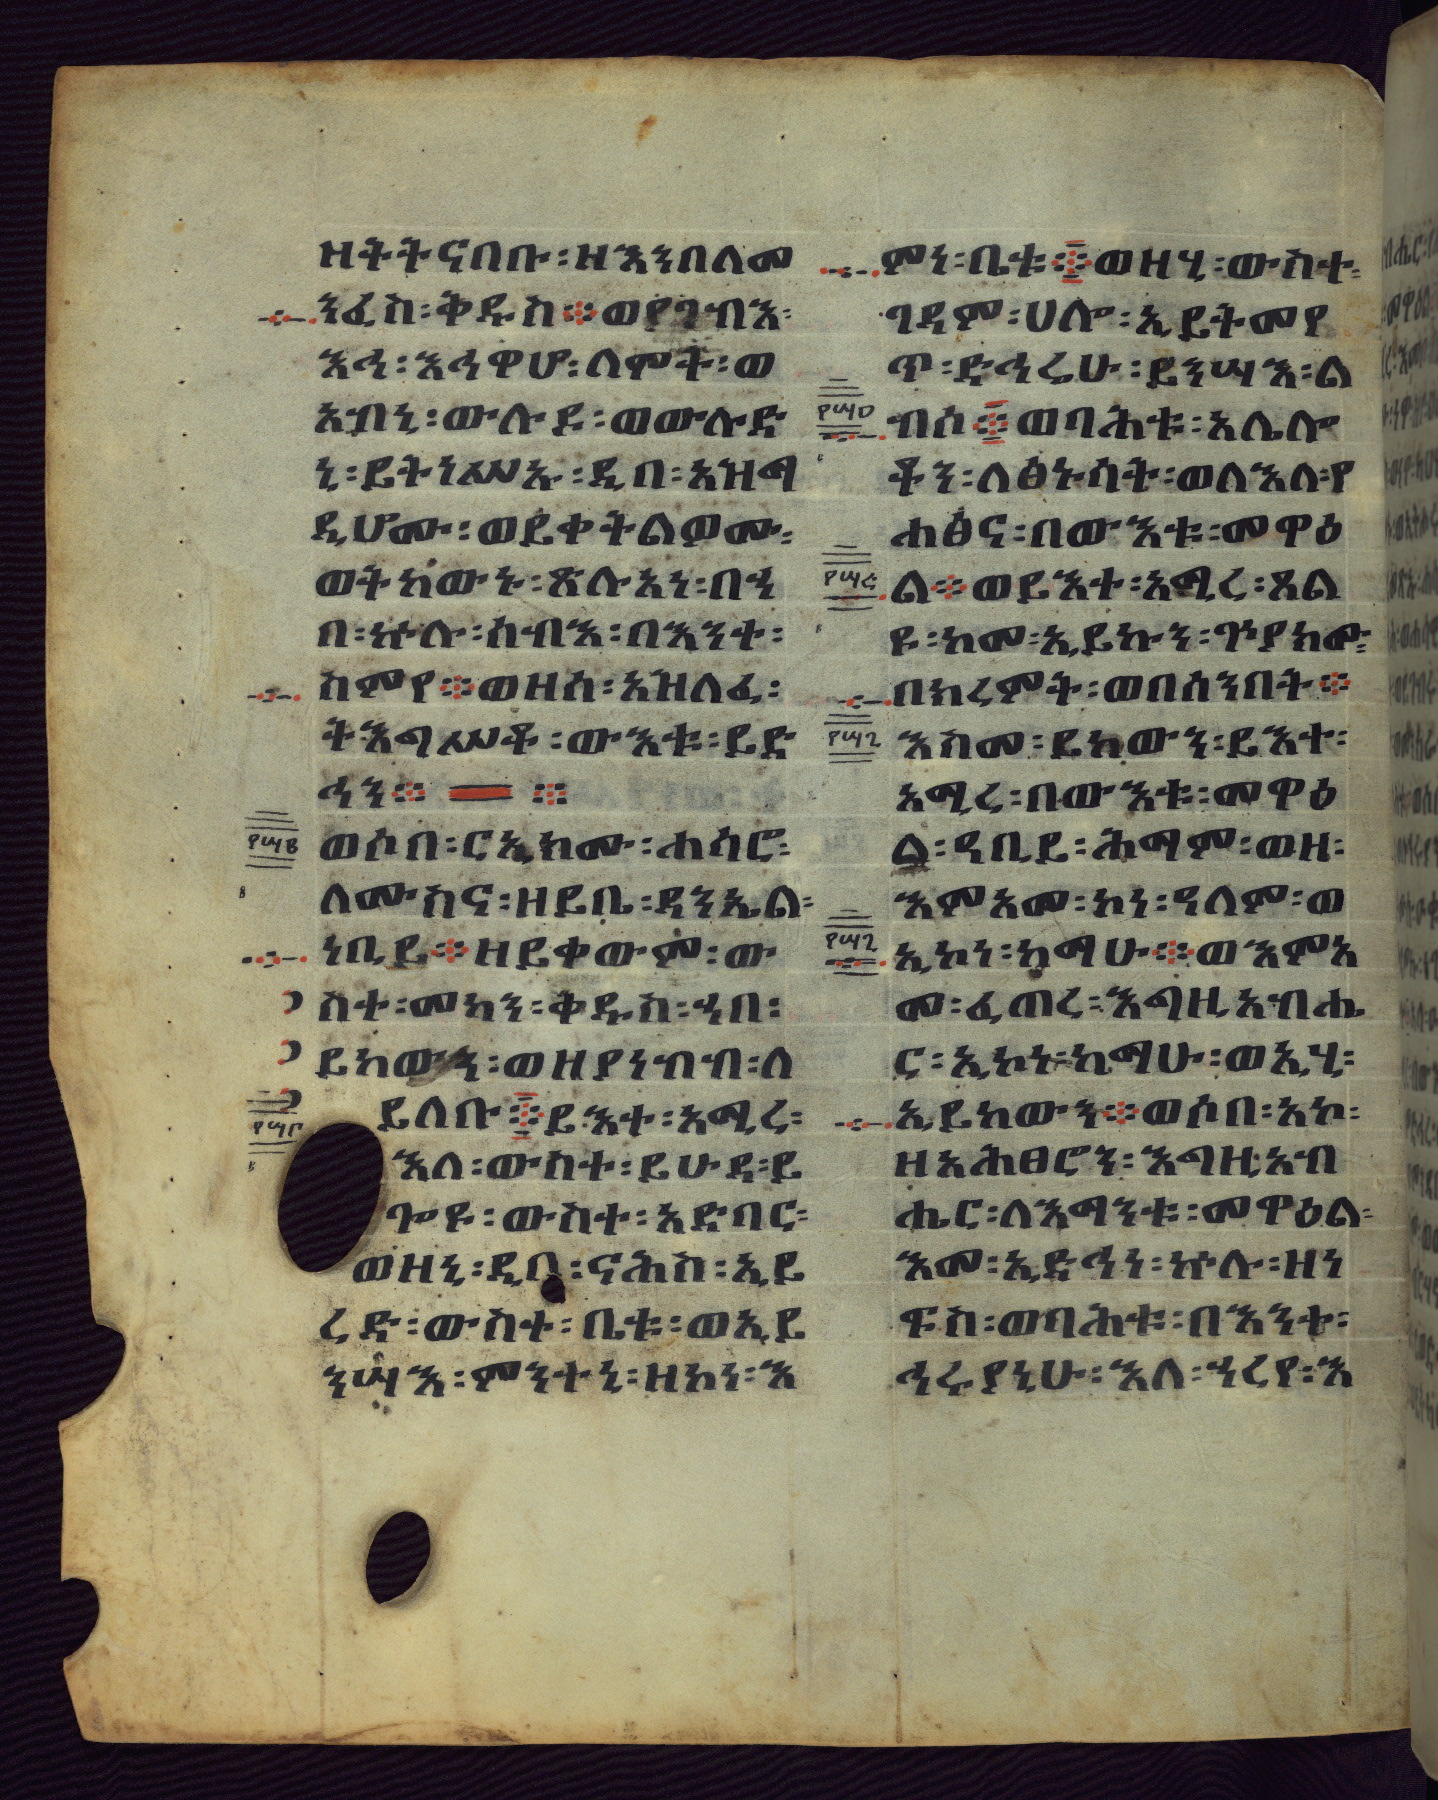 ዘትትናበቡ፡ዘእንበለመ
ንፈስ፡ቅዱስ፨ወየኀብእ፡
እኅ፡እኅዋሆ፡ለሞት፡ወ
አብኒ፡ውሉደ፡ወውሉድ
ኒ፡ይትነሥኡ፡ዲበ፡አዝማ
ዲሆሙ፡ወይቀትልዎሙ፡
ወትከውኑ፡ጽሉአነ፡በኀ
በ፡ኵሉ፡ሰብእ፡በእንተ፡
ስምየ፨ወዘሰ፡አዝለፈ፡
ትእግሥቶ፡ውእቱ፡ይድ
ኅን፨ ፨
ወሶበ፡ርኢክሙ፡ሐሳሮ፡
ለሙስና፡ዘይቤ፡ዳንኤል፡
ነቢይ፨ዘይቀውም፡ው
ስተ፡መካን፡ቅዱስ፡ኀበ፡
ይከውን፡ወዘያነብብ፡ለ
ይለቡ፨ይእተ፡አሚረ፡
እለ፡ውስተ፡ይሁዳ፡ይ
ጕዩ፡ውስተ፡አድባር፡
ወዘኒ፡ዲበ፡ናሕስ፡ኢይ
ረድ፡ውስተ፡ቤቱ፡ወኢይ
ንሣእ፡ምንተኒ፡ዘከነ፡እ
ምነ፡ቤቱ፨ወዘሂ፡ውስተ፡
ገዳም፡ሀሎ፡ኢይትመየ
ጥ፡ድኅሬሁ፡ይንሣእ፡ል
ብሰ፨ወባሕቱ፡አሌሎ
ቶን፡ለፅኑሳት፡ወለእለ፡የ
ሐፅና፡በውእቱ፡መዋዕ
ል፨ወይእተ፡አሚረ፡ጸል
ዩ፡ከመ፡ኢይኩን፡ጕያክሙ፡
በክረምት፡ወበሰንበት፨
እስመ፡ይከውን፡ይእተ፡
አሚረ፡በውእቱ፡መዋዕ
ል፡ዓቢይ፡ሕማም፡ወዘ፡
እምአመ፡ኮነ፡ዓለም፡ወ
ኢኮነ፡ከማሁ፨ወእምአ
መ፡ፈጠረ፡እግዚአብሔ
ር፡ኢኮኑ፡ከማሁ፡ወኢሂ፡
ኢይከውን፨ወሶበ፡አኮ፡
ዘአሕፀሮን፡እግዚአብ
ሔር፡ለእማንቱ፡መዋዕል፡
እመ፡ኢድኅነ፡ኵሉ፡ዘነ
ፍስ፡ወባሕቱ፡በእንተ፡
ኅሩያኒሁ፡እለ፡ኀረየ፡እ